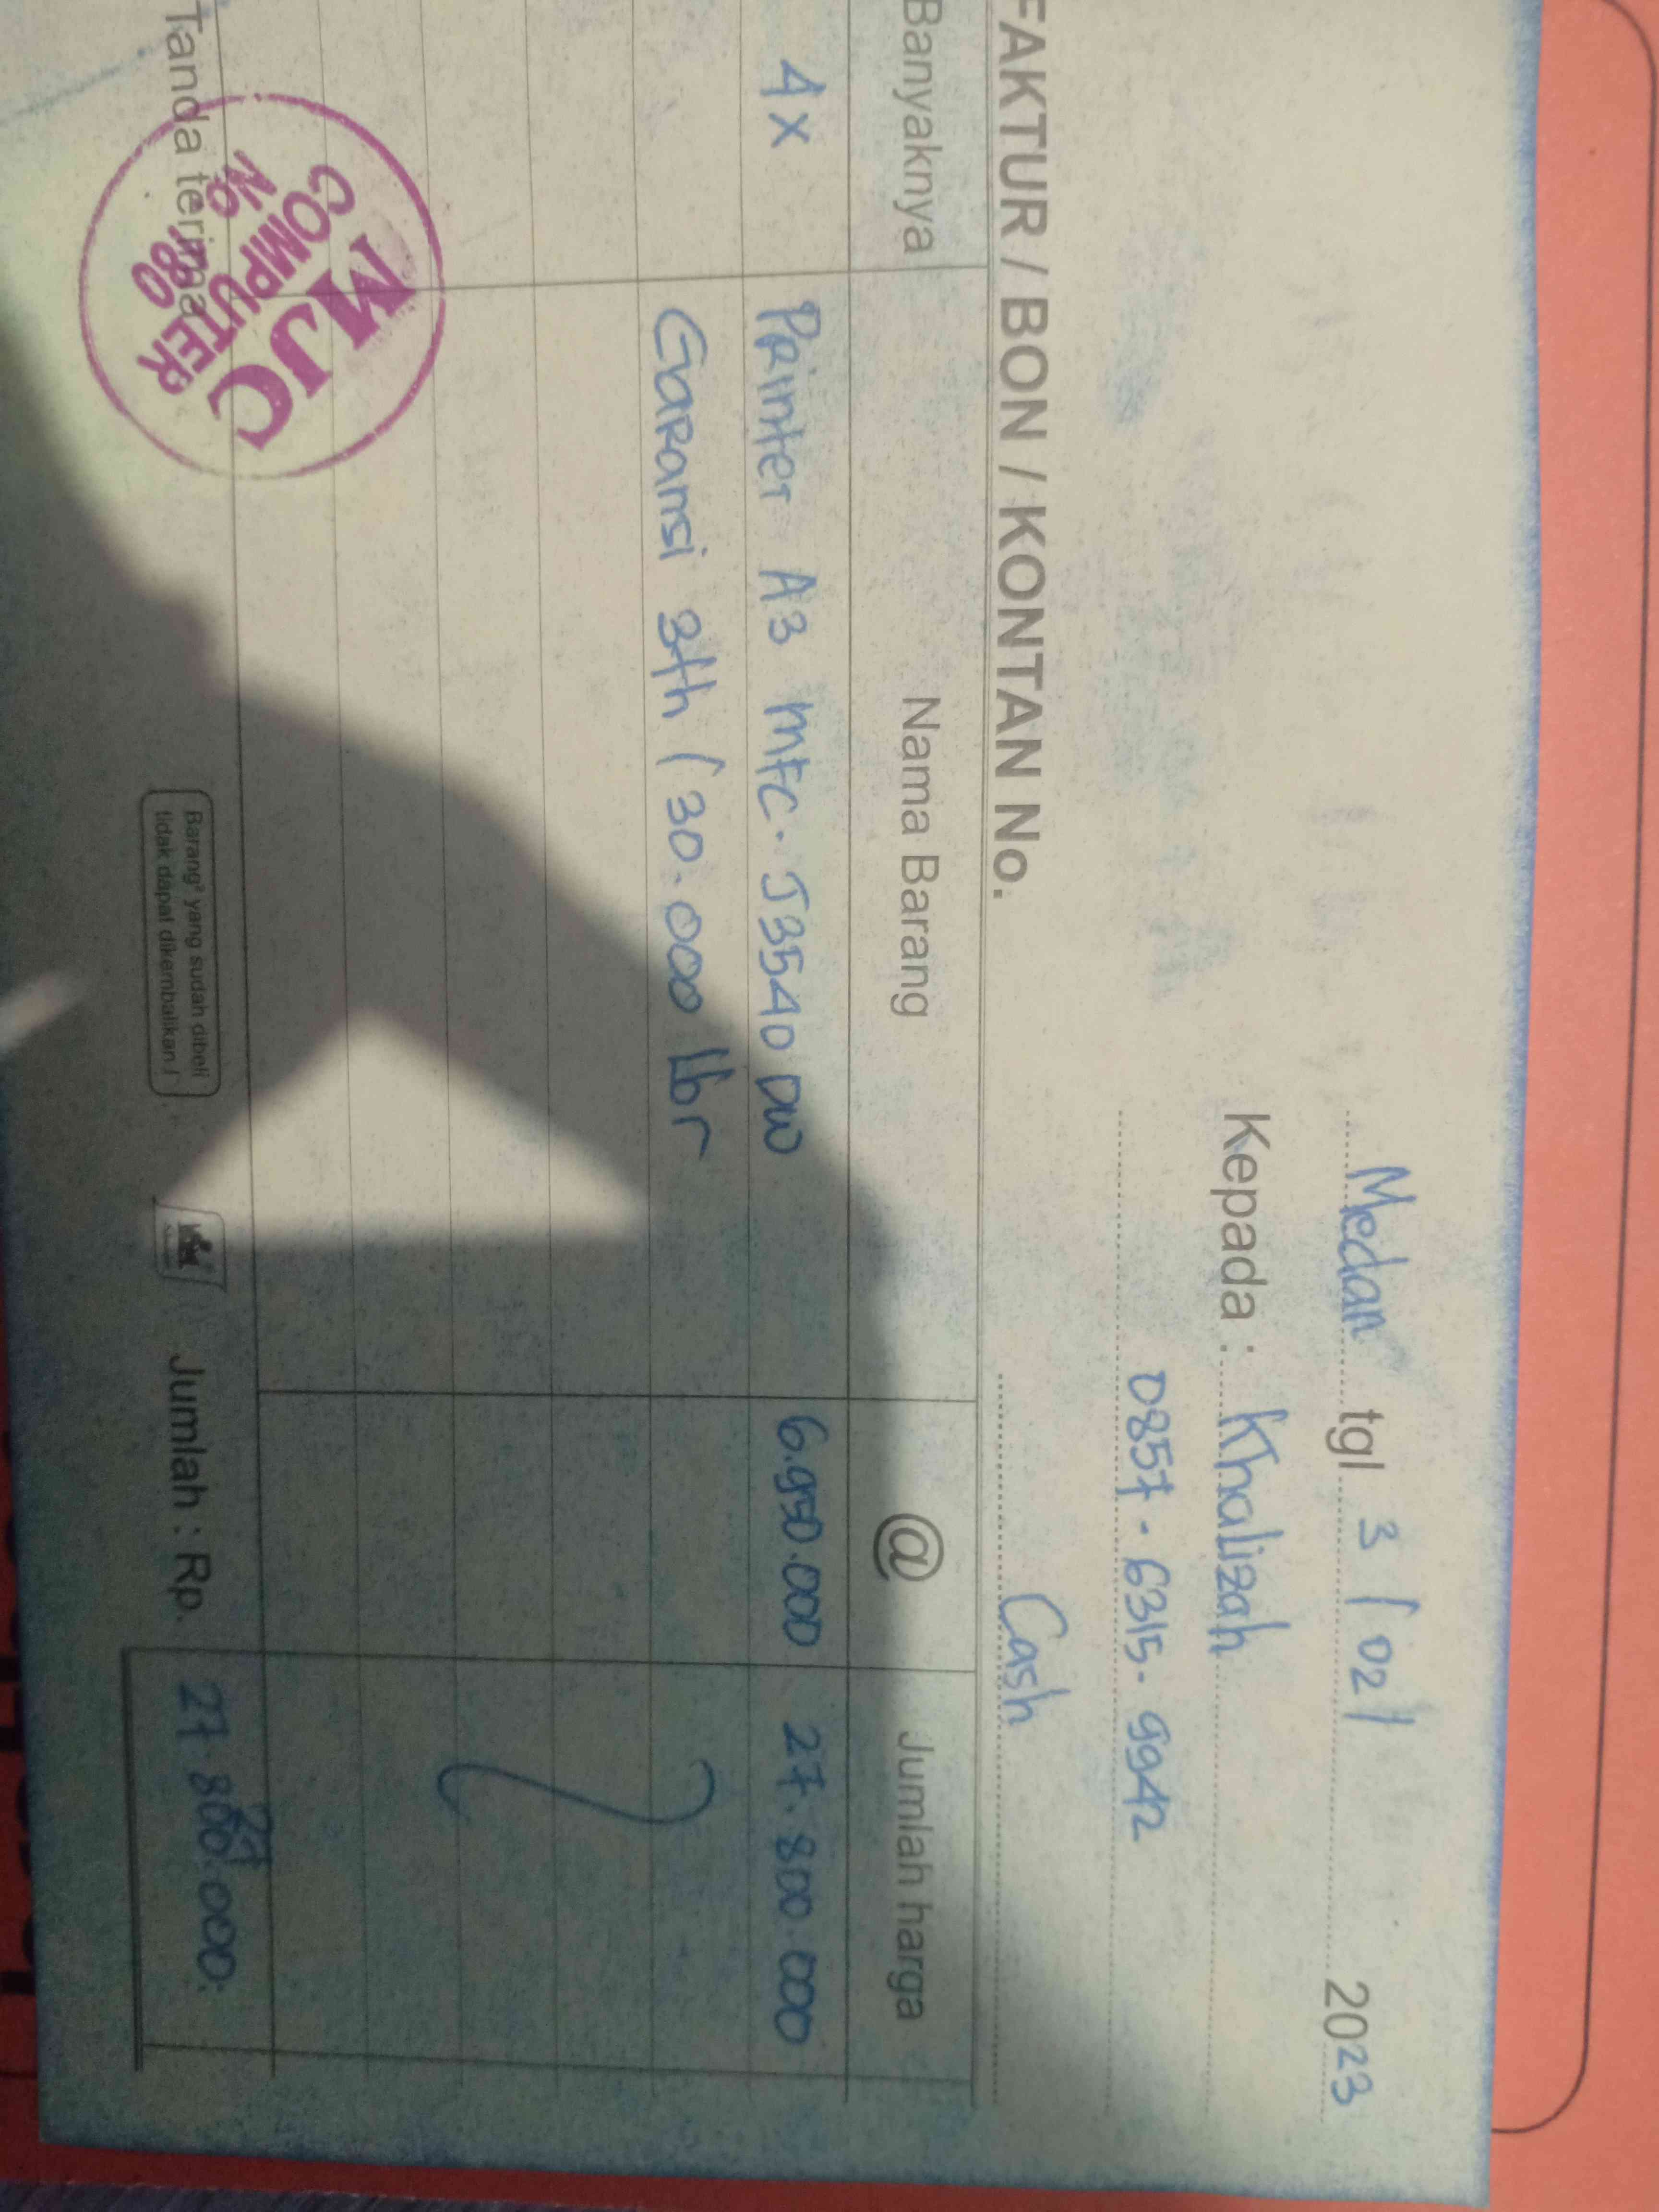 Medan tgl 3 / 02 / 2023
Kepada : Khalizah
0857 - 6315 - 9942
Cash
FAKTUR / BON / KONTAN No.
Banyaknya Nama Barang @ Jumlah harga
4x Printer A3 MFC. J3540 DW 6.950.000 27.800.000
Garansi 3th / 30.000 lbr
Jumlah : Rp. 27.800.000.
Tanda terima
Barang² yang sudah dibeli
tidak dapat dikembalikan !
MJC
COMPUTER